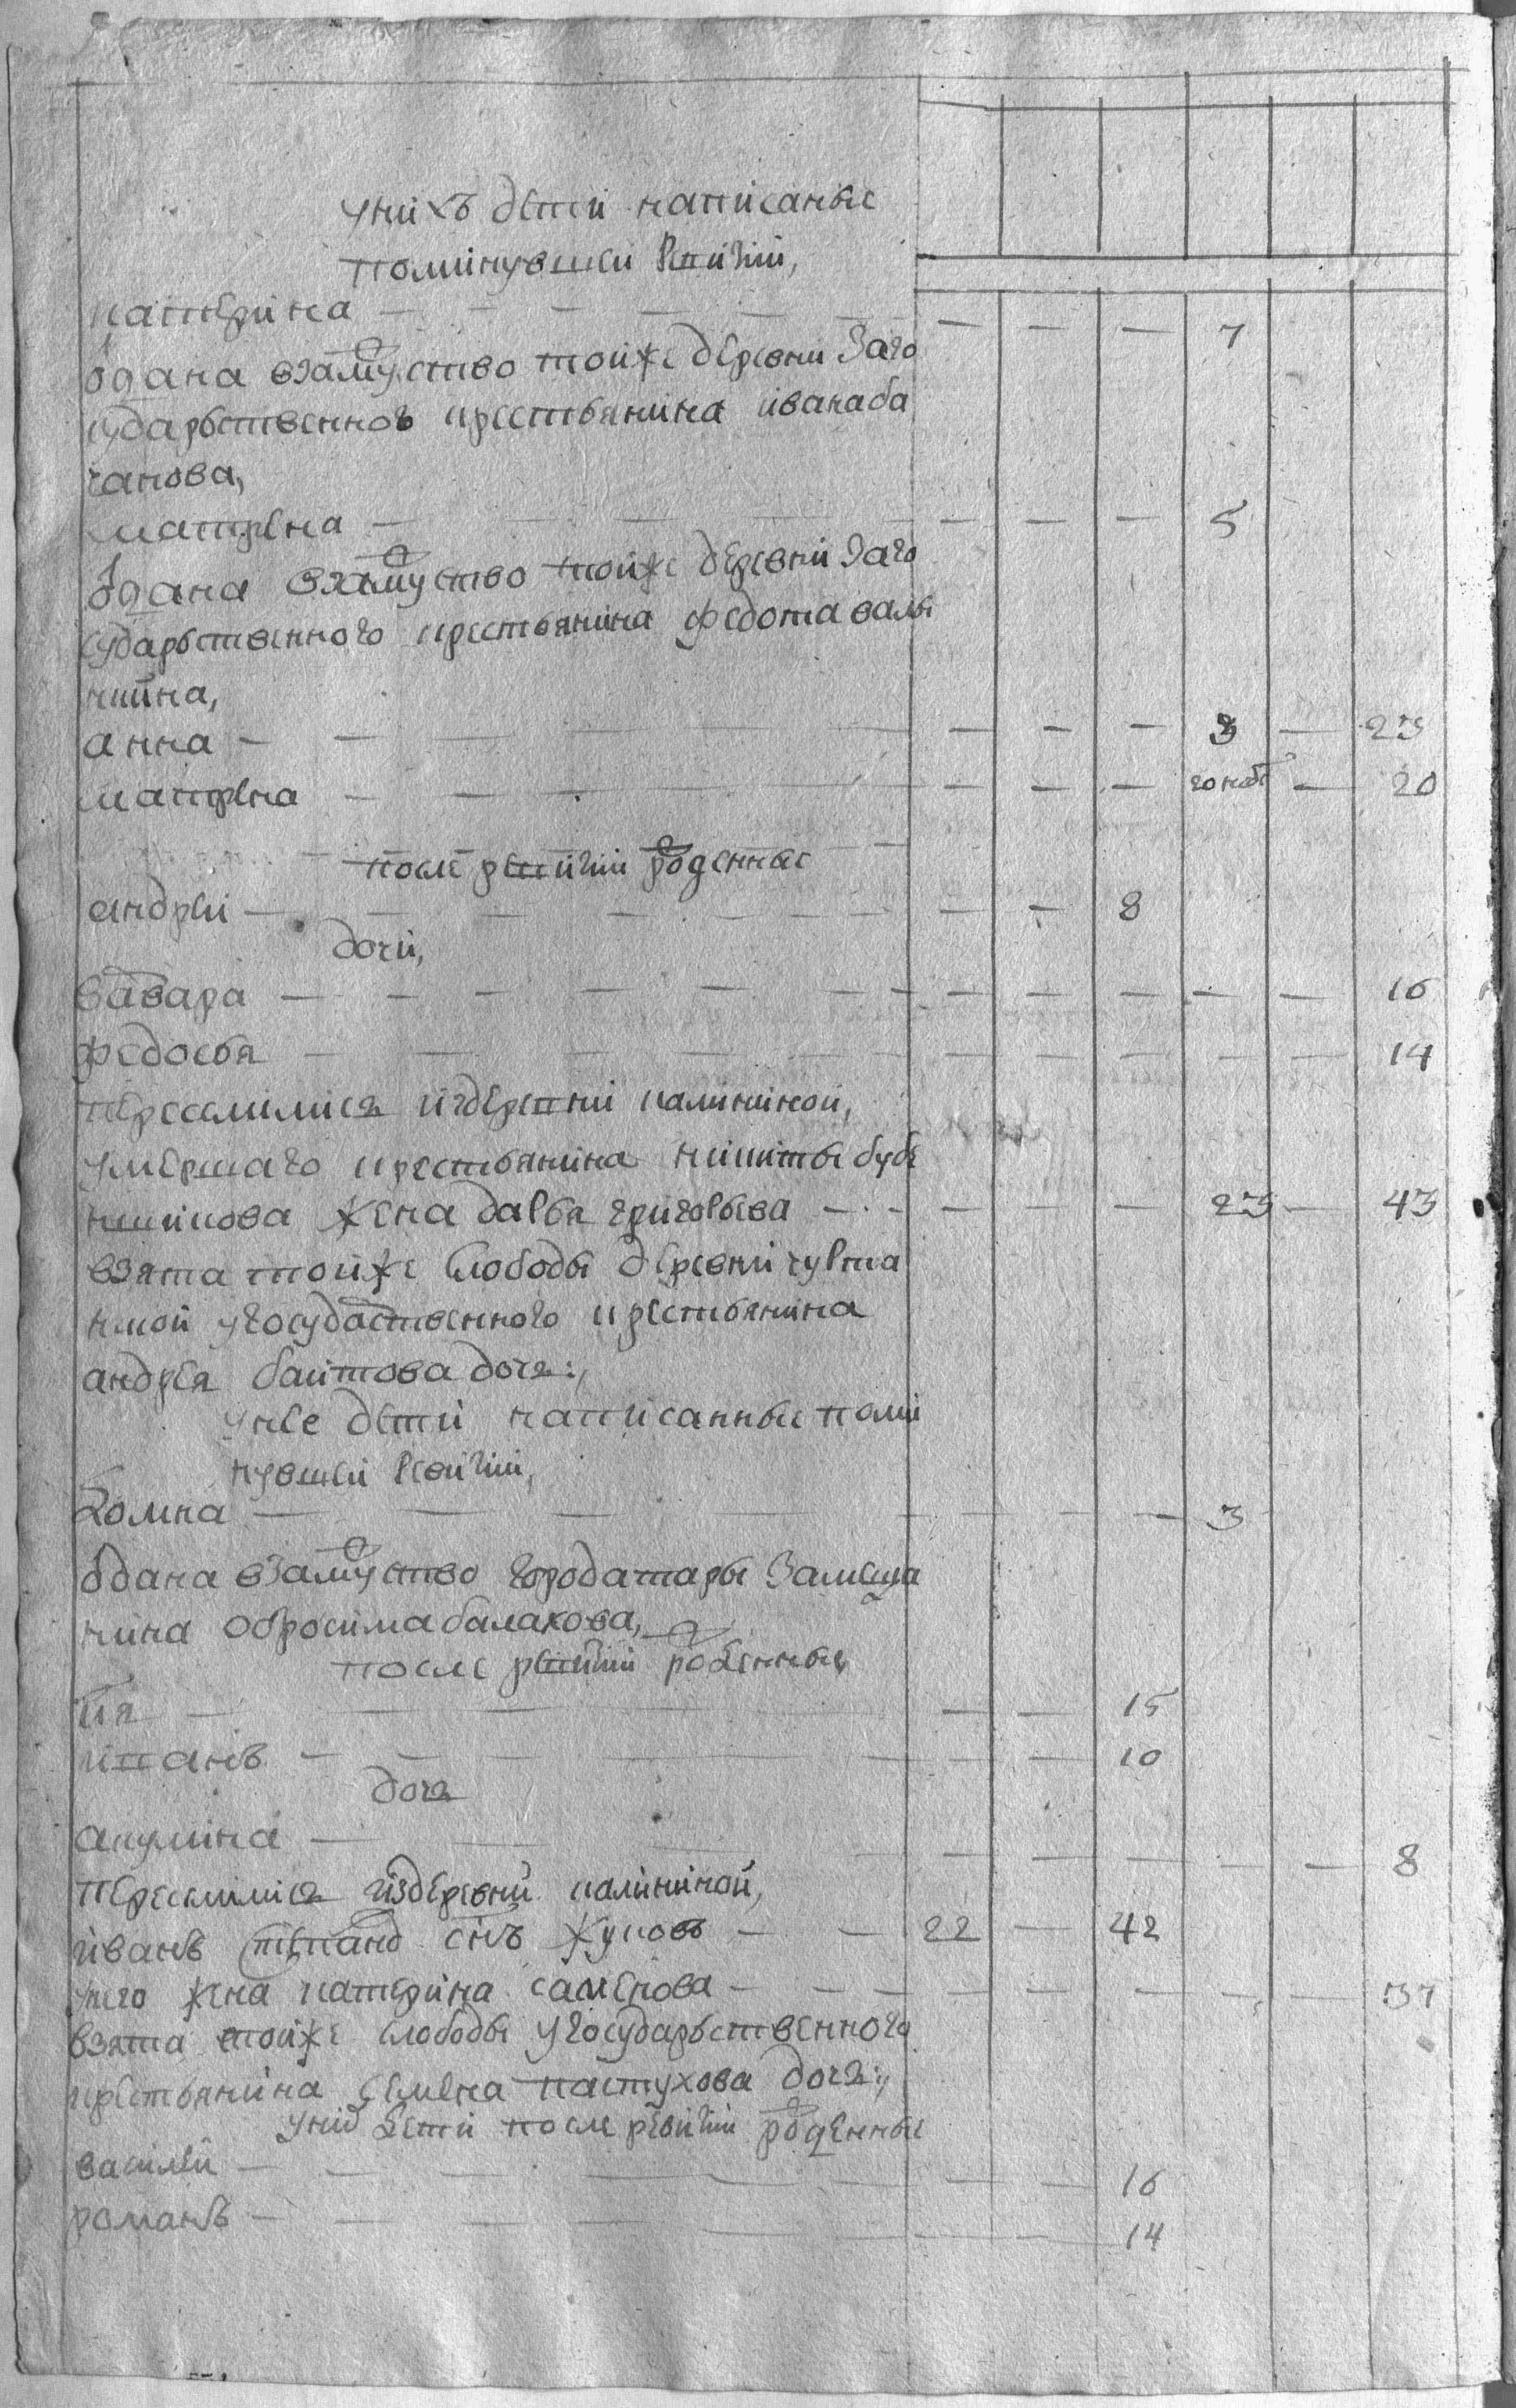 у нихъ дети написаные
по минувшей ревизии,
катерина — — — — — — — — — 7
одана взамуство тойже деревни заго
сударьственного крестьянина ивана ба
чанова,
матрена — — — — — — — — 5
одана взамуство тойже деревни заго
сударьственного крестьянина федота валы
нкина,
анна — — — — — — — — 3 — 23
матрена — — — — — — — — 20
после ревизии роденные
андрей — — — — — — — — 8
дочи,
вавара — — — — — — — — — — — — 16
федосья — — — — — — — — — — — — 14
переселились издеревни калининой,
умершаго крестьянина никиты бубе
ншикова жена дарья григорьева — — — — — 23 — 43
взята тойже слободы деревни
ной угосударственного крестьянина
андрея баитова дочь:,
унее дети написанные поми
нувшей ревизии,
домна — — — — — — — — 3
одана взамуство города тары замеща
нина обросима балахова,
после ревизии роденные
илья — — — — — — — 15
иванъ — — — — — — — 10
дочь
акулина — — — — — — — — — 8
переселились издеревни калининой,
иванъ степановъ сынъ жуковъ — — 22 — 42
унего жена катерина саменова — — — — — — — — — 37
взята тойже слободы угосударьственного
крестьянина семена пастухова дочь:,
унихъ дети после ревизии роденные
василей — — — — — — — — 16
романъ — — — — — — — — 14